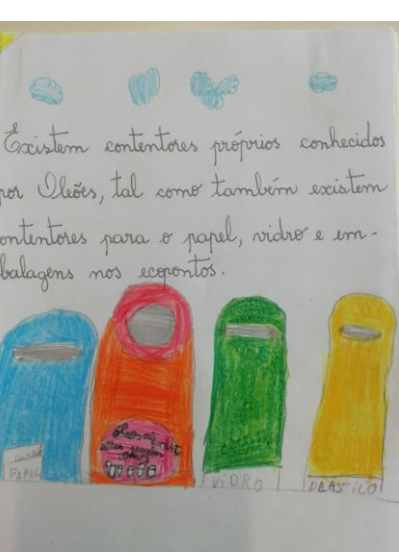 Existem contentores próprios conhecidos
por Oleões, tal como também existem
contentores para o papel, vidro e em-
balagens nos ecopontos.
PAPEL
VIDRO
PLASTICO